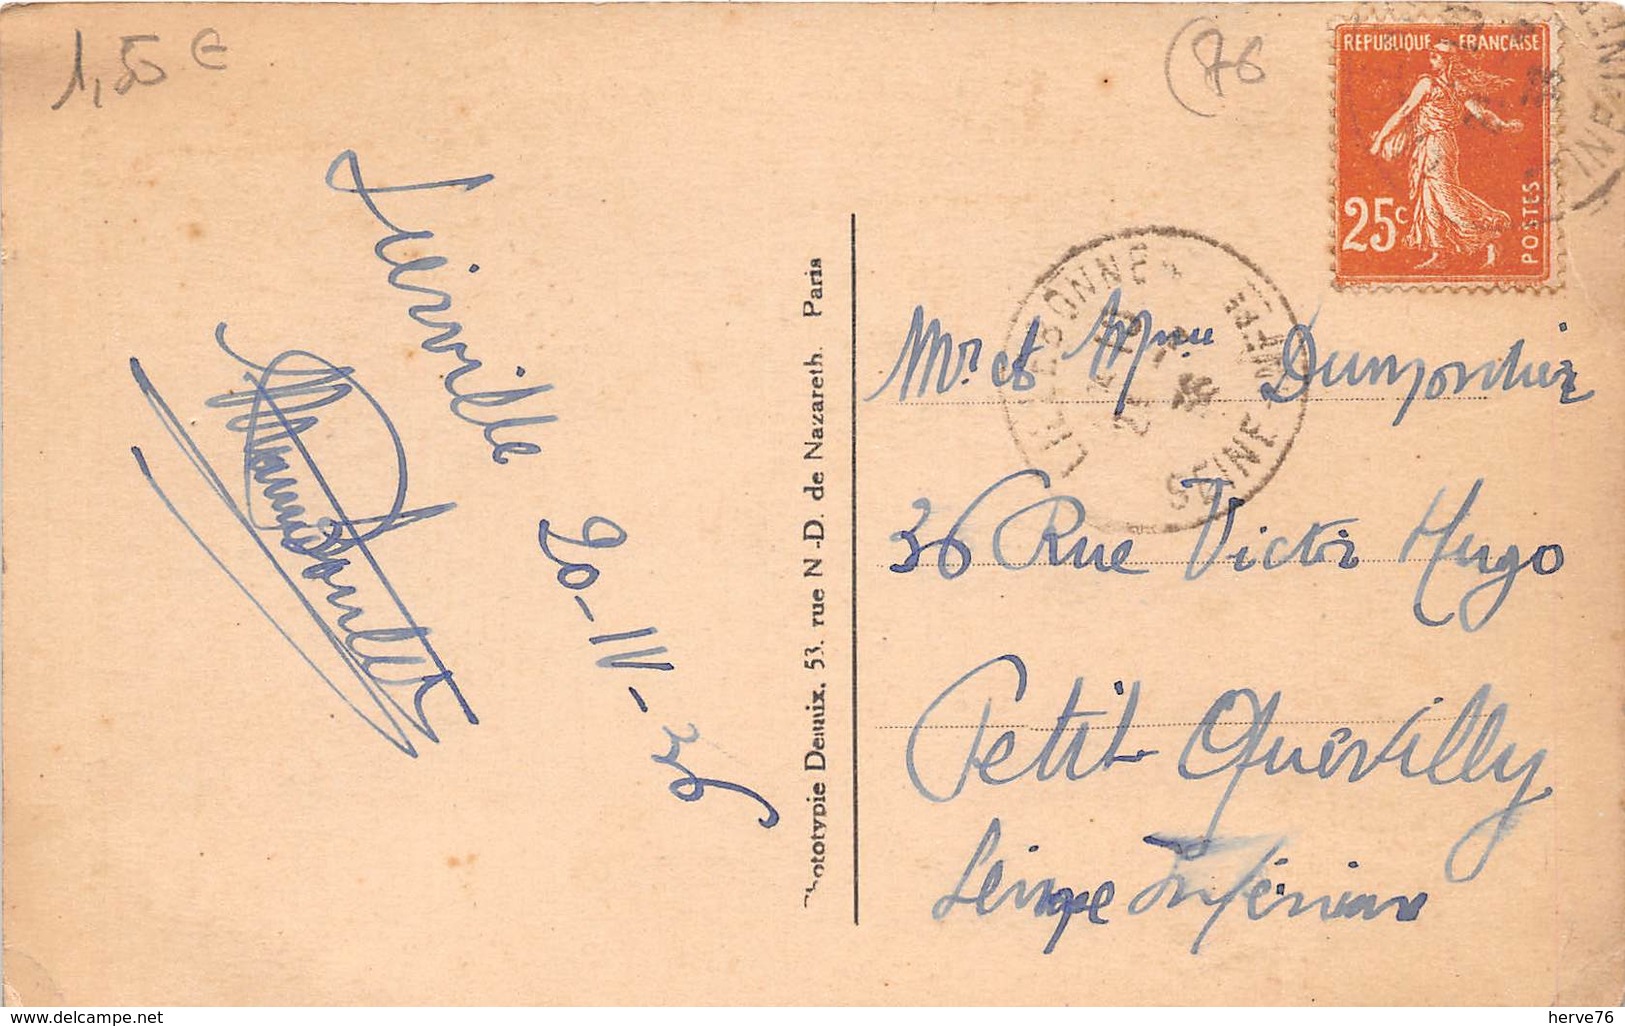 1,50 €
(76
REPUBLIQUE FRANÇAISE
25c
POSTES
LILLEBONNE
SEINE-INFRE
20-IV-36
Phototypie Demix, 53, rue N.-D. de Nazareth. Paris
Mr et Mme
36 Rue Victor Hugo
Petit Quevilly
Seine Inférieure
www.delcampe.net
herve76